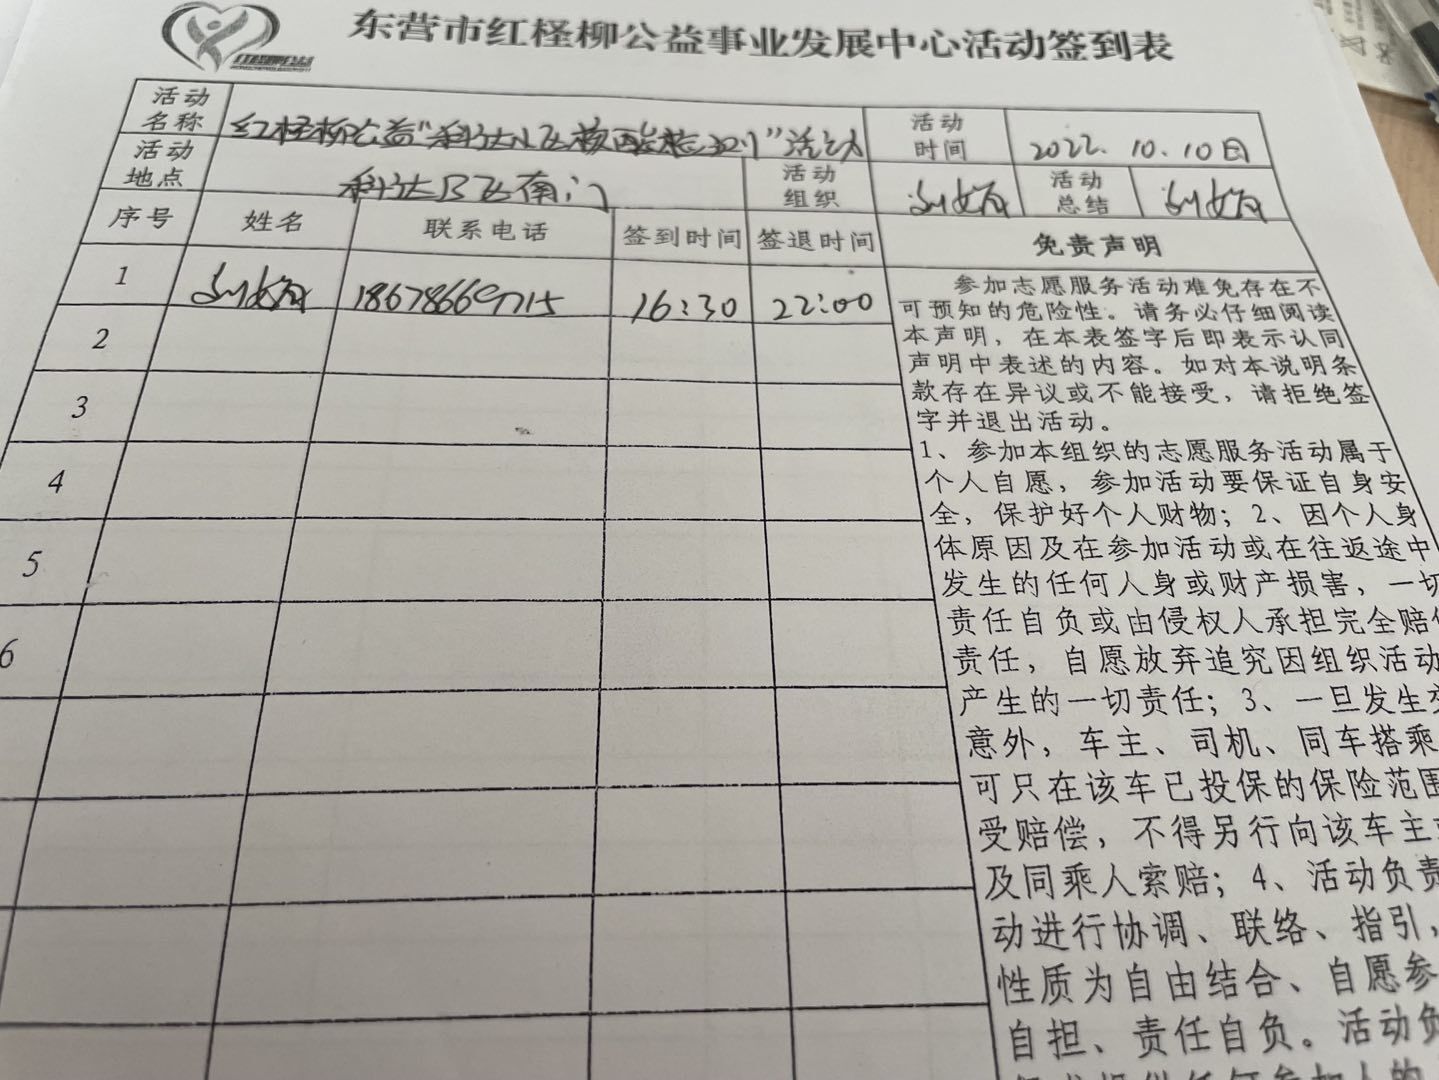 东营市红柽柳公益事业发展中心活动签到表
活动名称 红柽柳公益"科达小区核酸检测"活动 活动时间 2022.10.10日
活动地点 科达B区南门 活动组织 活动总结
序号 姓名 联系电话 签到时间 签退时间 免责声明
1 16:30 22:00
2
3
4
5
6
参加志愿服务活动难免存在不
可预知的危险性。请务必仔细阅读
本声明，在本表签字后即表示认同
声明中表述的内容。如对本说明条
款存在异议或不能接受，请拒绝签
字并退出活动。
1、参加本组织的志愿服务活动属于
个人自愿，参加活动要保证自身安
全，保护好个人财物；2、因个人身
体原因及在参加活动或在往返途中
发生的任何人身或财产损害，一切
责任自负或由侵权人承担完全赔偿
责任，自愿放弃追究因组织活动
产生的一切责任；3、一旦发生交
意外，车主、司机、同车搭乘
可只在该车已投保的保险范围
受赔偿，不得另行向该车主或
及同乘人索赔；4、活动负责
动进行协调、联络、指引，
性质为自由结合、自愿参
自担、责任自负。活动负